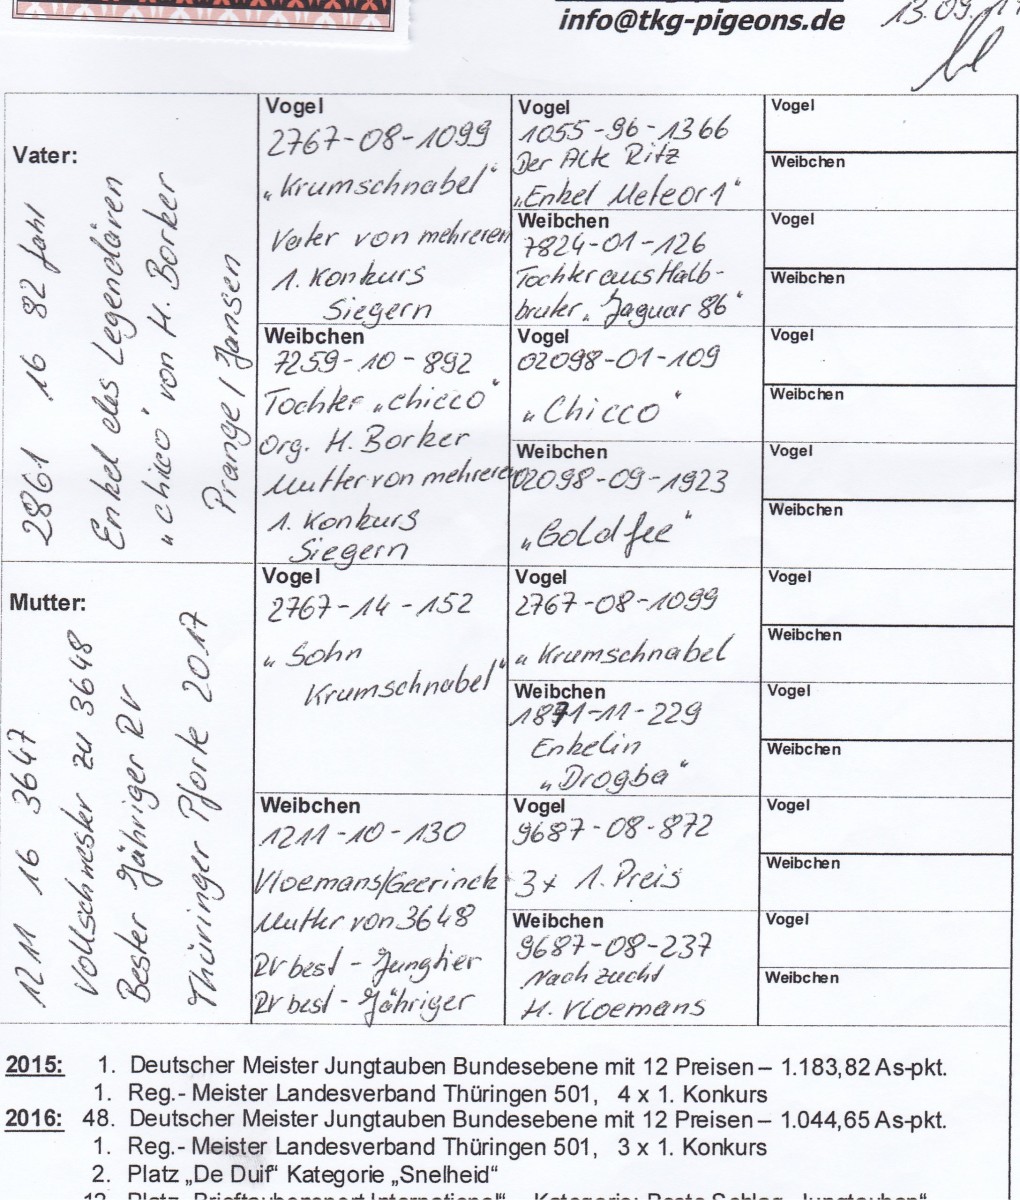 info@tkg-pigeons.de
13.09.17
Vater:
2861 16 82 fahl
Enkel des Legendären
"chicco" von H. Borker
Prange / Jansen
Vogel
2767-08-1099
„Krumschnabel“
Vater von mehreren
1. Konkurs
Siegern
Weibchen
7259-10-892
Tochter „chicco“
Org. H. Borker
Mutter von mehreren
1. Konkurs
Siegern
Vogel
1055-96-1366
Der Alte Ritz
„Enkel Meteor 1“
Weibchen
7824-01-126
Tochter aus Halb-
bruder „Jaguar 86“
Vogel
02098-01-109
„Chicco“
Weibchen
02098-09-1923
„Goldfee“
Vogel
Weibchen
Vogel
Weibchen
Vogel
Weibchen
Vogel
Weibchen
Mutter:
1211 16 3647
Vollschwester zu 3648
Bester Jähriger RV
Thüringer Pforte 2017
Vogel
2767-14-152
„Sohn
Krumschnabel“
Weibchen
1211-10-130
Vloemans/Geerinck
Mutter von 3648
RV best - Jungtier
RV best - Jähriger
Vogel
2767-08-1099
„Krumschnabel
Weibchen
1871-11-229
Enkelin
„Drogba“
Vogel
9687-08-872
3x 1. Preis
Weibchen
9687-08-237
Nachzucht
H. Vloemans
Vogel
Weibchen
Vogel
Weibchen
Vogel
Weibchen
Vogel
Weibchen
2015: 1. Deutscher Meister Jungtauben Bundesebene mit 12 Preisen – 1.183,82 As-pkt.
1. Reg.- Meister Landesverband Thüringen 501, 4 x 1. Konkurs
2016: 48. Deutscher Meister Jungtauben Bundesebene mit 12 Preisen – 1.044,65 As-pkt.
1. Reg.- Meister Landesverband Thüringen 501, 3 x 1. Konkurs
2. Platz „De Duif“ Kategorie „Snelheid“
12. Platz „Brieftaubensport International“ – Kategorie: Beste Schlag „Jungtauben“